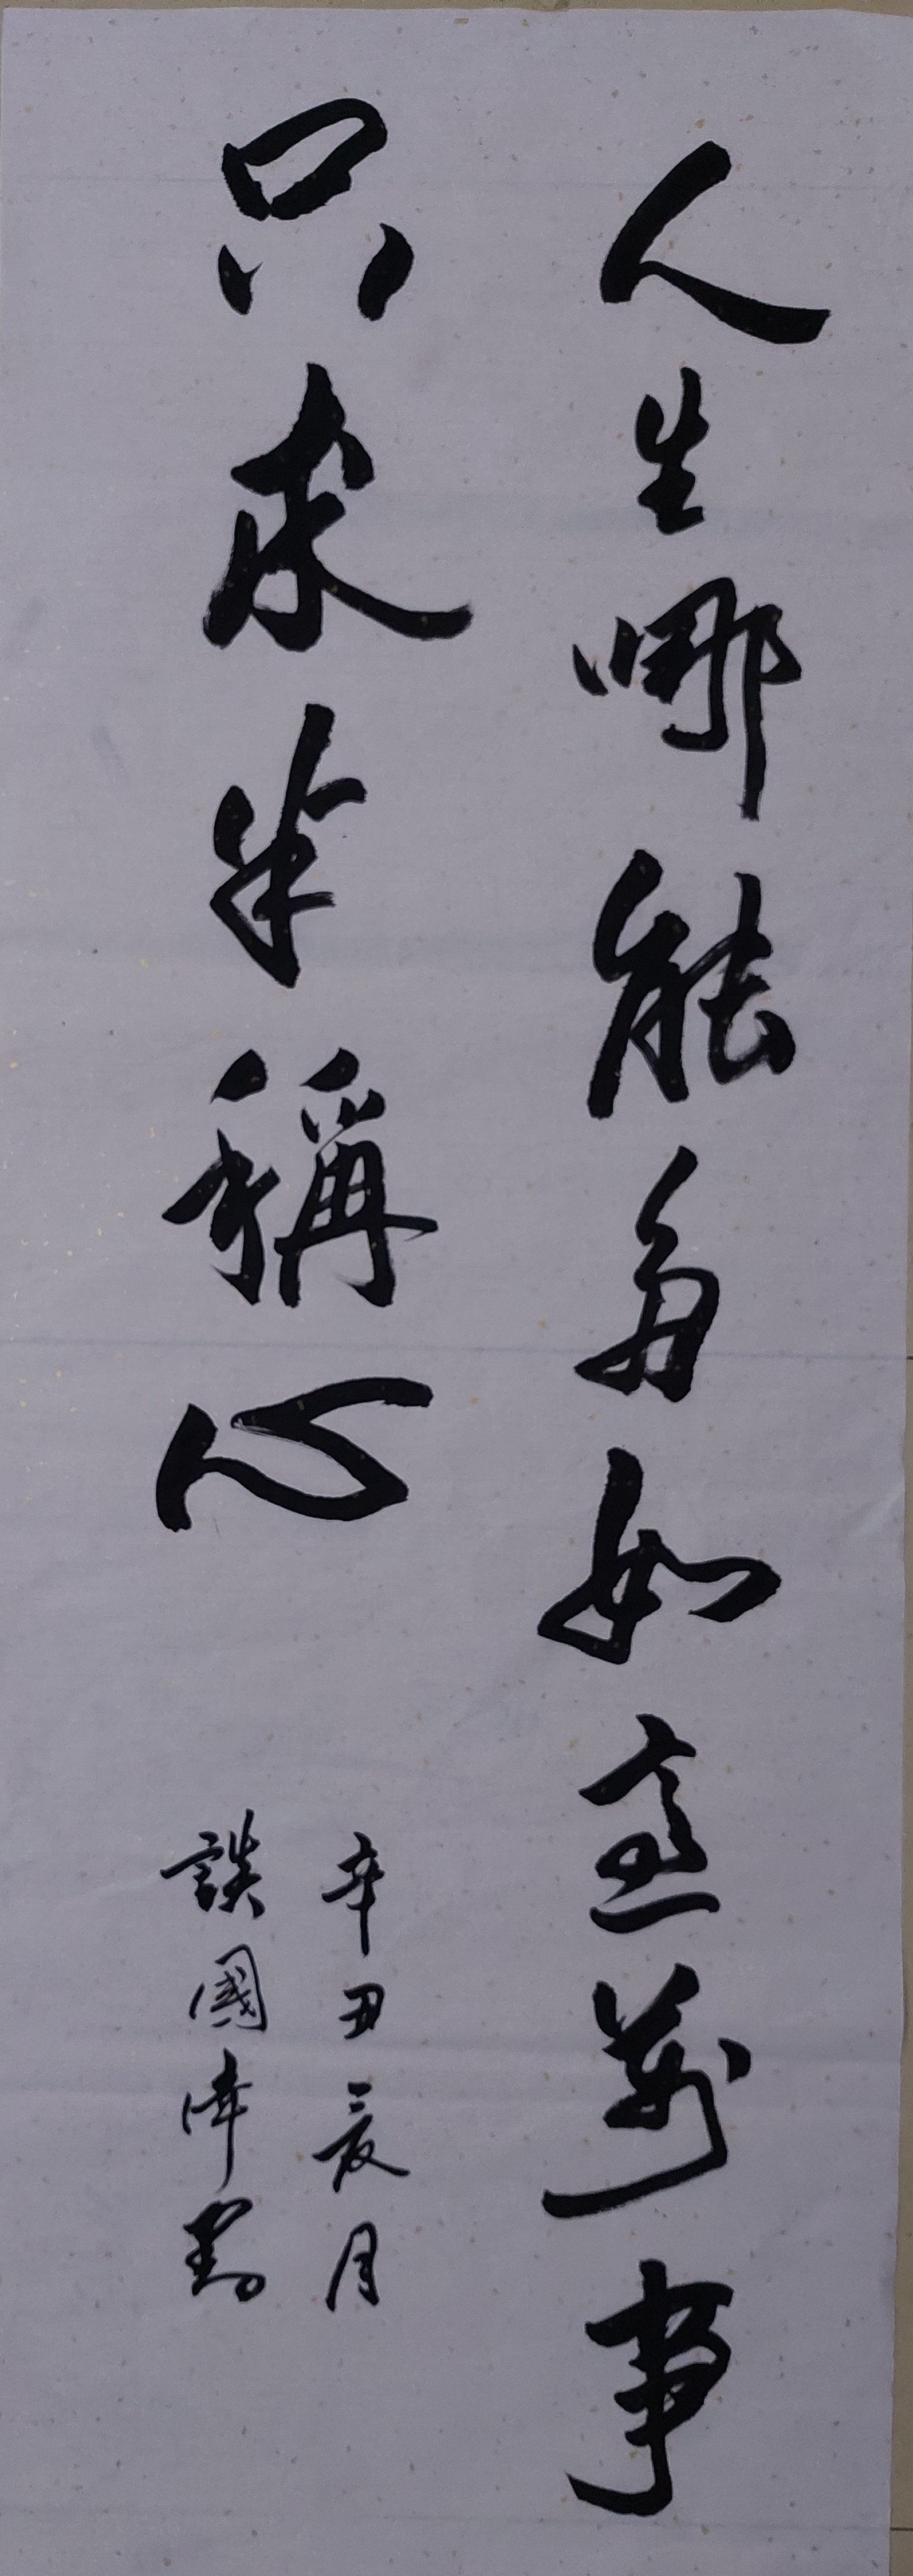 人生哪能多如意萬事
只求半稱心
辛丑夏月
談國偉書